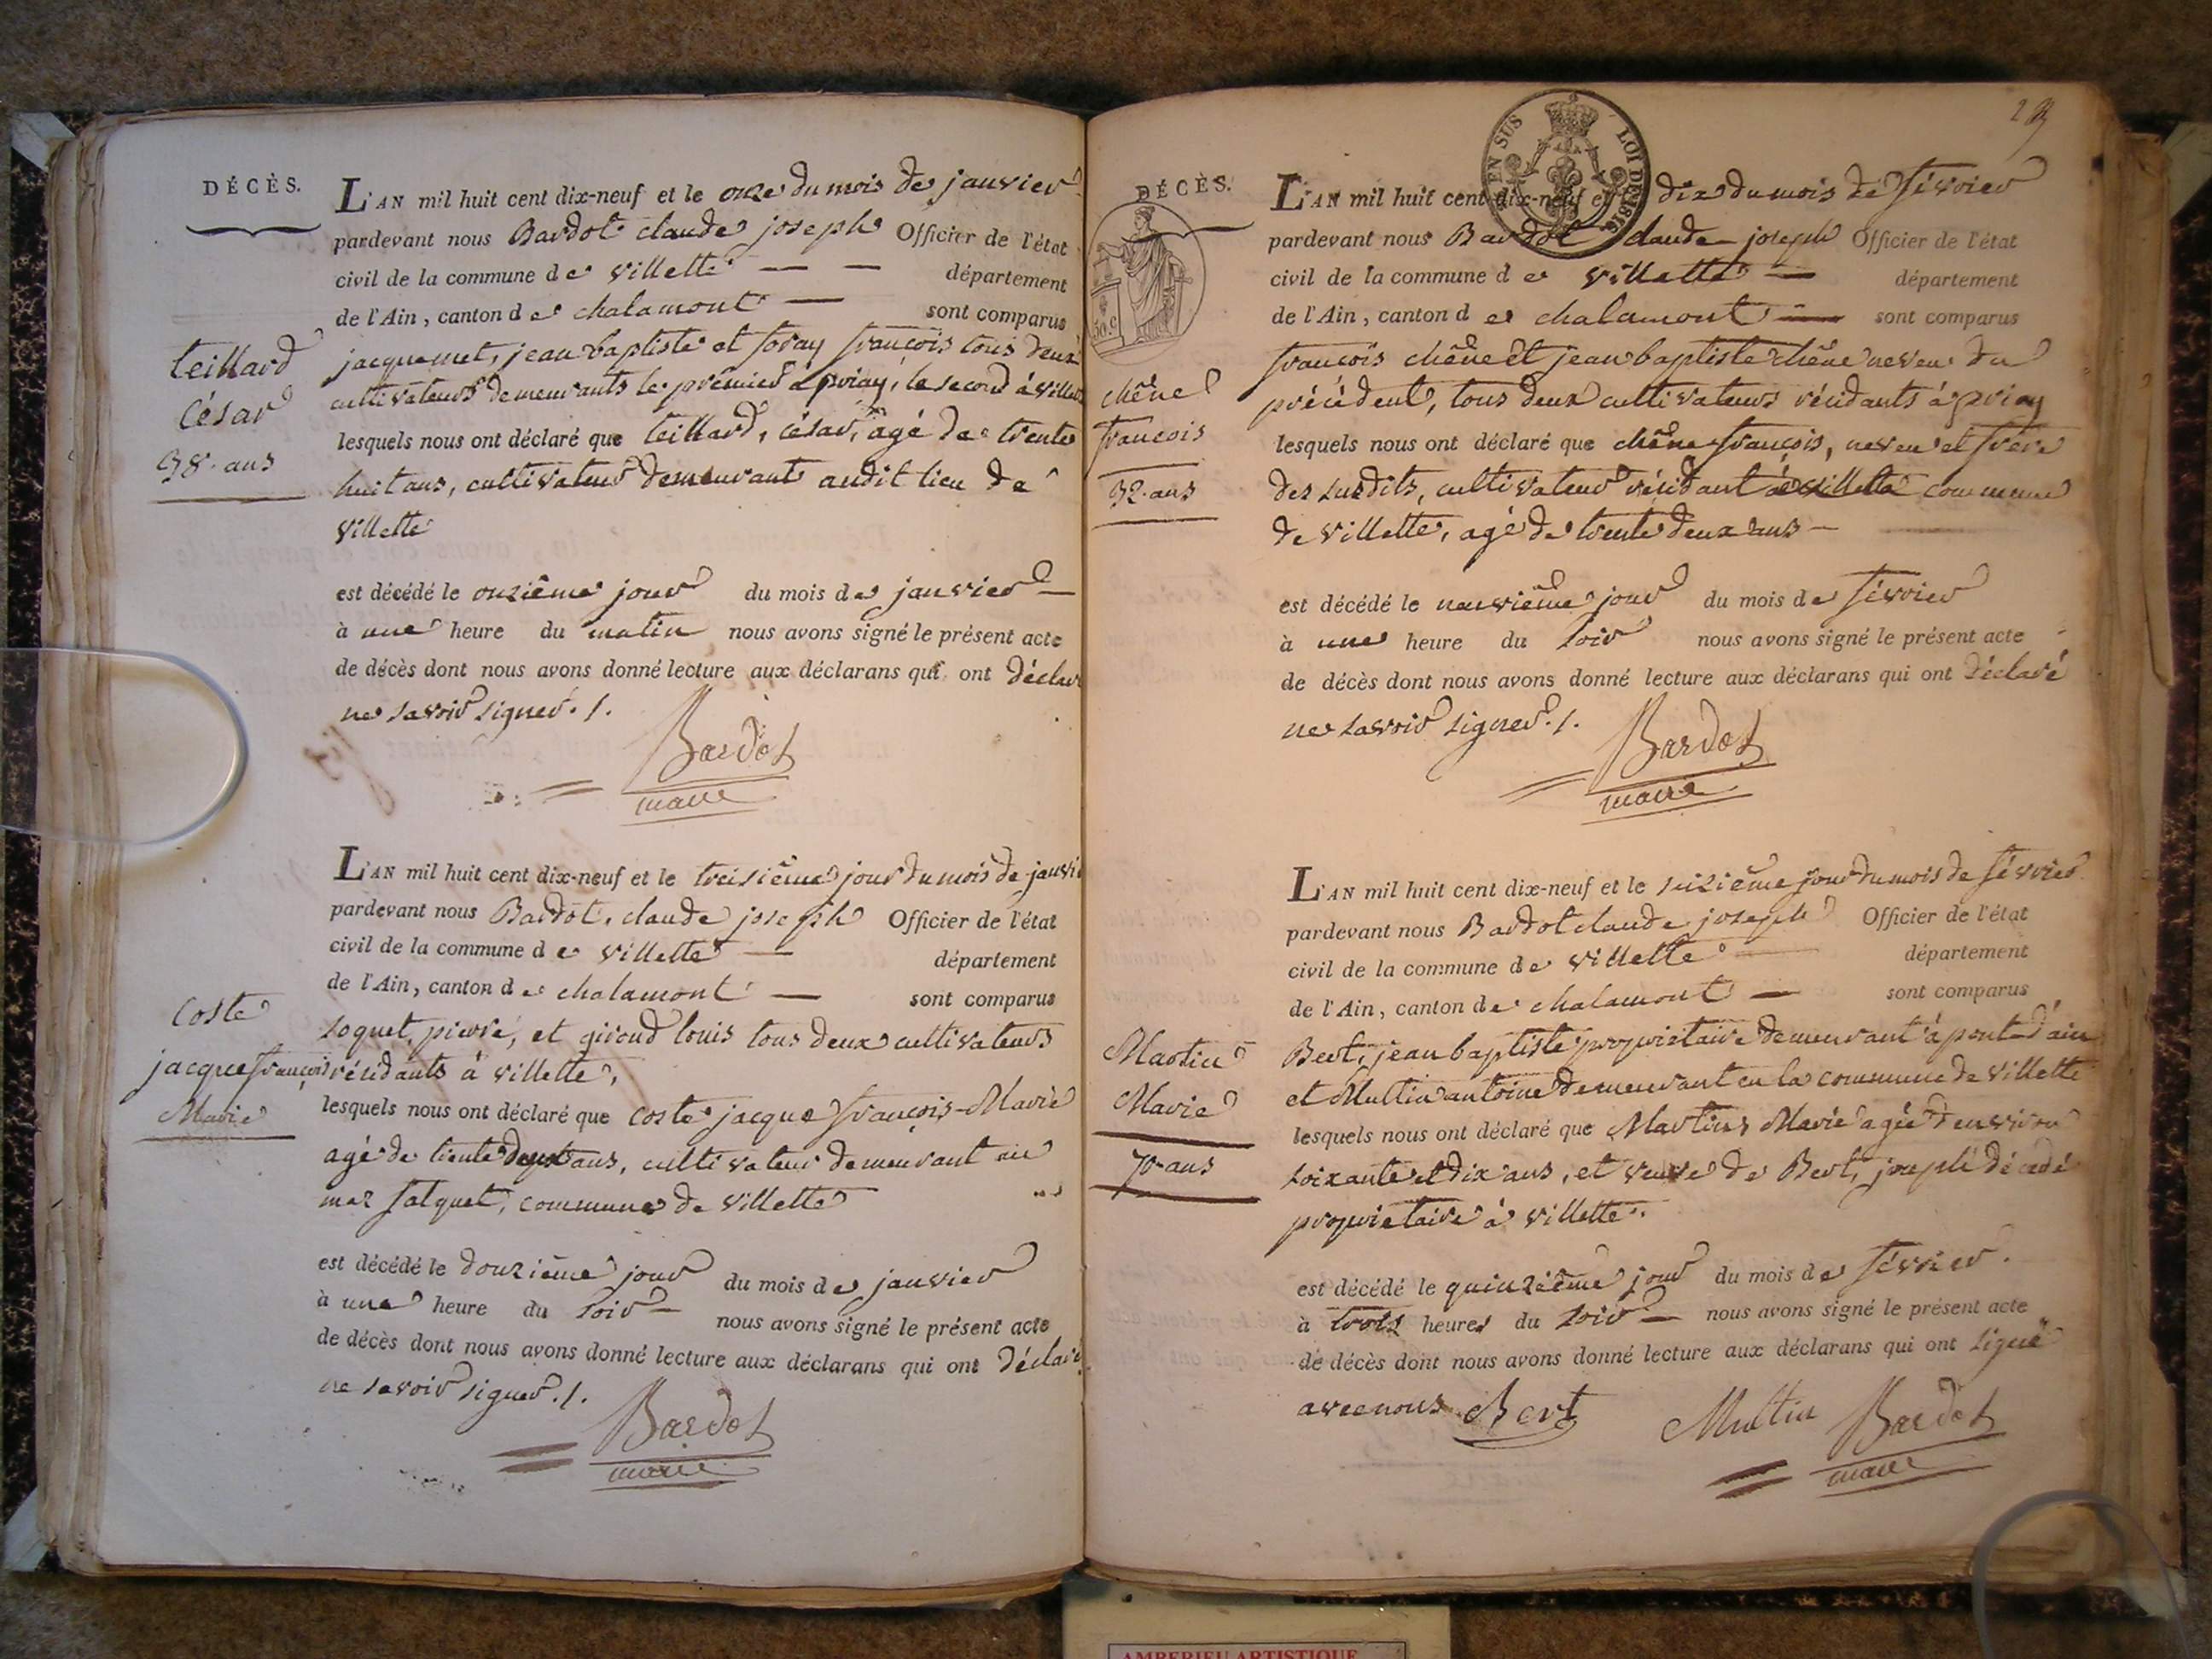 DÉCÈS.
L'AN mil huit cent dix-neuf et le onze du mois de janvier
pardevant nous Bardot claude joseph Officier de l'état
civil de la commune de villette — — département
de l'Ain, canton de chalamont — sont comparus
teillard
césar
38. ans
jacquemet, jean baptiste et foray françois tous deux
cultivateurs demeurants le premier à priay, le second à villette
lesquels nous ont déclaré que teillard, césar, agé de trente
huit ans, cultivateur demeurant audit lieu de
villette
est décédé le onzième jour du mois de janvier —
à une heure du matin nous avons signé le présent acte
de décès dont nous avons donné lecture aux déclarans qui ont déclaré
ne savoir signer ./.
Bardot
maire
L'AN mil huit cent dix-neuf et le treizième jour du mois de janvi
pardevant nous Bardot, claude joseph Officier de l'état
civil de la commune de villette — département
de l'Ain, canton de chalamont — sont comparus
coste
jacque françois
Marie
soquet, pierre, et giroud louis tous deux cultivateurs
résidants à villette,
lesquels nous ont déclaré que coste jacque françois-Marie
agé de trente deux ans, cultivateur demeurant au
mas falquet, commune de villette
est décédé le douzième jour du mois de janvier
à une heure du soir — nous avons signé le présent acte
de décès dont nous avons donné lecture aux déclarans qui ont déclaré
ne savoir signer ./.
Bardot
maire
29
EN SUS LOI DE 1816
DÉCÈS.
50.c
L'AN mil huit cent dix-neuf et le dix du mois de février
pardevant nous Bardot claude joseph Officier de l'état
civil de la commune de villette — département
de l'Ain, canton de chalamont — sont comparus
chêne
françois
32. ans
françois chêne et jean baptiste chêne neveu du
précédent, tous deux cultivateurs résidants à priay
lesquels nous ont déclaré que chêne françois, neveu et frère
des susdits, cultivateur résidant à villette commune
de villette, agé de trente deux ans —
est décédé le neuvième jour du mois de février
à une heure du soir nous avons signé le présent acte
de décès dont nous avons donné lecture aux déclarans qui ont déclaré
ne savoir signer ./.
Bardot
maire
L'AN mil huit cent dix-neuf et le seizième jour du mois de février
pardevant nous Bardot claude joseph Officier de l'état
civil de la commune de villette département
de l'Ain, canton de chalamont — sont comparus
Martin
Marie
70 ans
Bert, jean baptiste propriétaire demeurant à pont-d'ain
et Multin antoine demeurant en la commune de villette
lesquels nous ont déclaré que Martin Marie agée d'environ
soixante et dix ans, et veuve de Bert, joseph décédé
propriétaire à villette.
est décédé le quinzième jour du mois de février.
à trois heures du soir — nous avons signé le présent acte
de décès dont nous avons donné lecture aux déclarans qui ont signé
avec nous Bert Multin Bardot
maire
AMBERIEU ARTISTIQUE